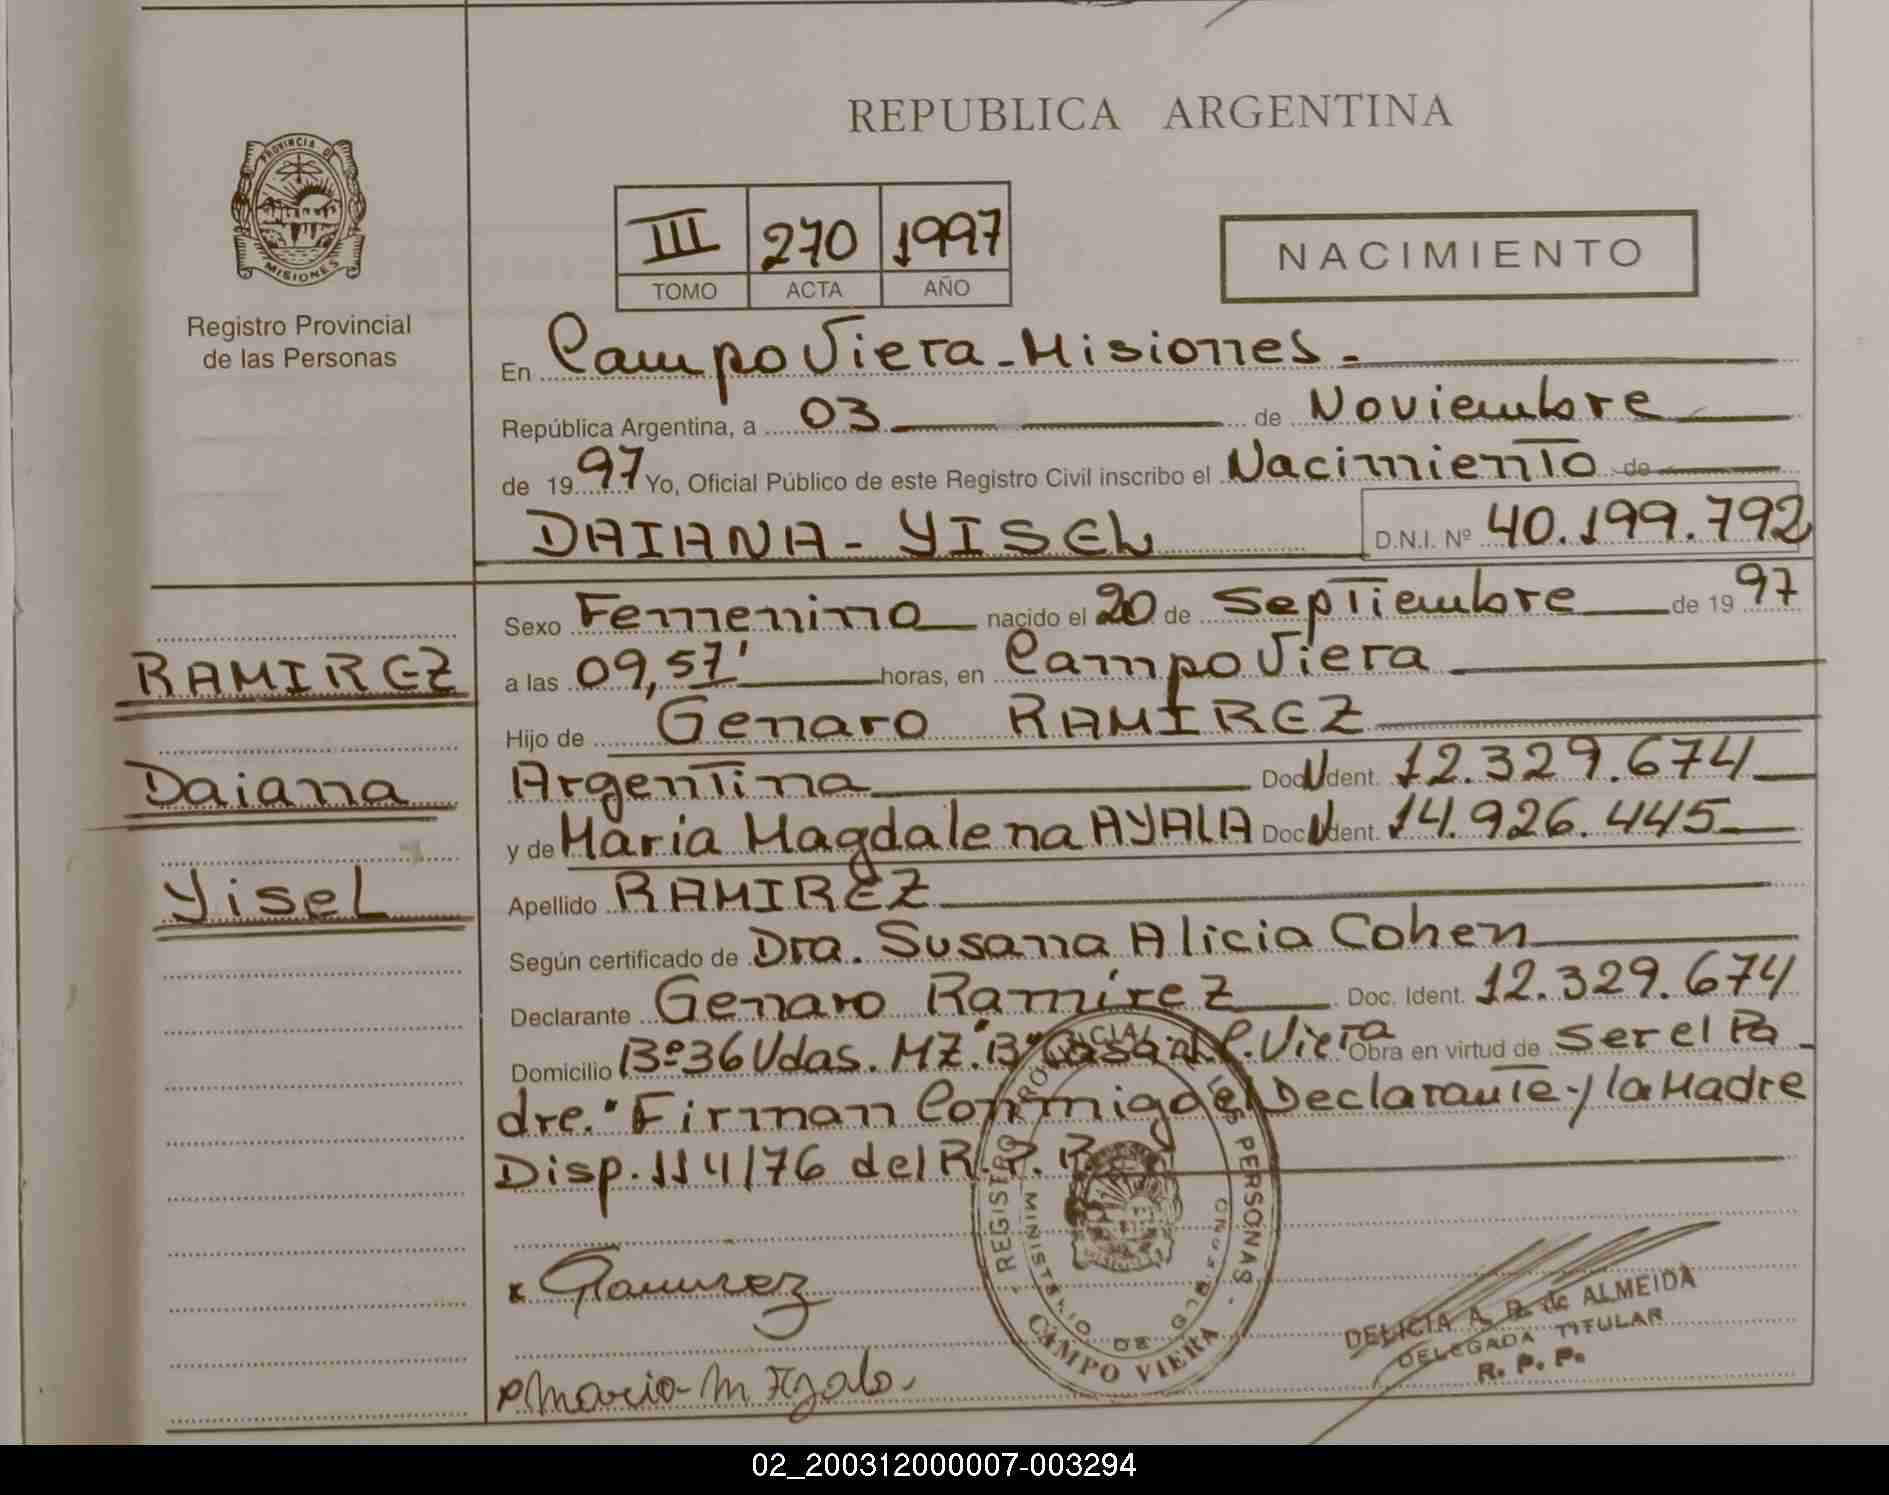 REPUBLICA ARGENTINA
PROVINCIA DE
MISIONES
Registro Provincial
de las Personas
III 270 1997
TOMO ACTA AÑO
NACIMIENTO
En Campo Viera - Misiones -
República Argentina, a 03 de Noviembre
de 1997 Yo, Oficial Público de este Registro Civil inscribo el Nacimiento de
DAIANA - YISEL D.N.I. Nº 40.199.792
Sexo Femenino nacido el 20 de Septiembre de 1997
a las 09,57' horas, en Campo Viera
Hijo de Genaro RAMIREZ
Argentina Doc. Ident. 12.329.674
y de Maria Magdalena AYALA Doc. Ident. 14.926.445
Apellido RAMIREZ
Según certificado de Dra. Susana Alicia Cohen
Declarante Genaro Ramírez Doc. Ident. 12.329.674
Domicilio Bº 36 Vdas. MZ. "B" Casa C. Viera Obra en virtud de Ser el Pa-
dre." Firman Conmigo el Declarante y la Madre
Disp. 114/76 del R.P.P.
RAMIREZ
Daiana
Yisel
Ramirez
Maria - M Ayala.
REGISTRO PROVINCIAL DE LAS PERSONAS
MINISTERIO DE GOBIERNO
CAMPO VIERA
DELICIA A. R. de ALMEIDA
DELEGADA TITULAR
R. P. P.
02_200312000007-003294